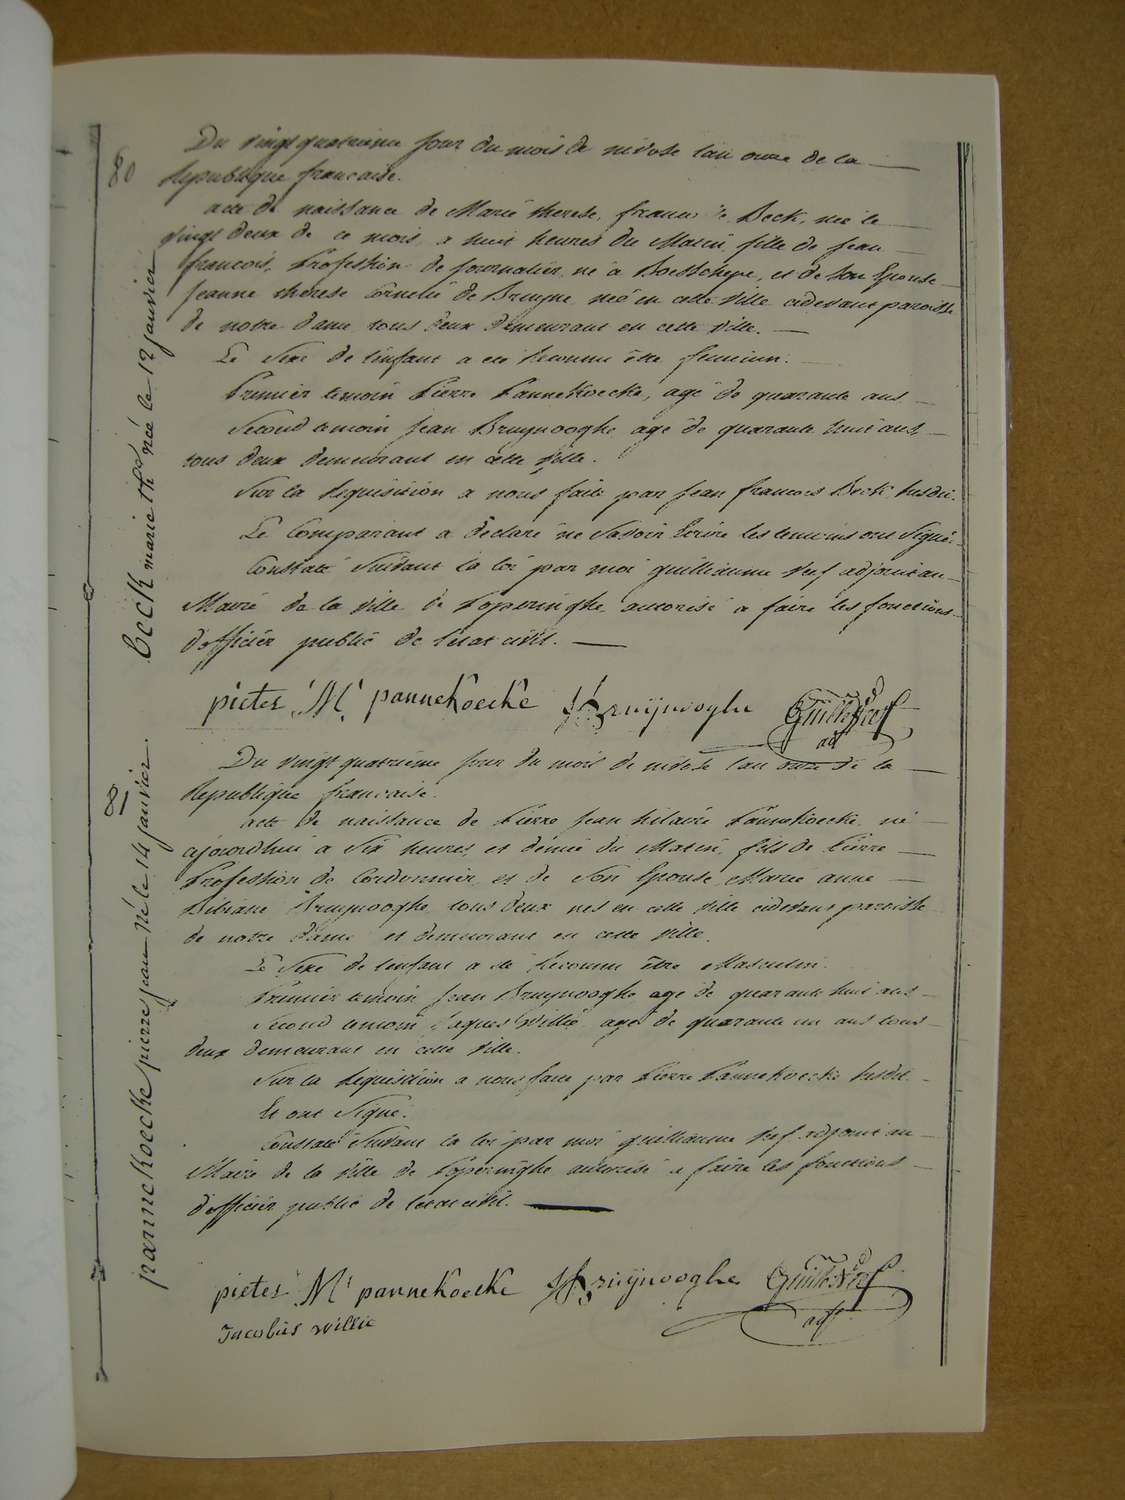 80
beck marie th née le 12 janvier
Du vingt quatrieme jour du mois de nivose l'an onze de la
Republique francaise.
acte de naissance de Marie therese, Beck, née le
vingt deux de ce mois, a huit heures du Matin fille de jean
francois, Profession de journalier, né à Boesschepe, et de son Epouse
jeanne therese Cornelie de Bruyne, née en cette Ville cidevant paroisse
de notre dame tous deux demeurant en cette Ville.
Le Sexe de l'enfant a eté Reconnu être feminin.
Premier temoin Pierre Pannekoecke, agé de quarante ans
Second temoin jean Bruynooghe agé de quarante huit ans,
tous deux demeurant en cette Ville.
Sur la Requisition a nous faite par jean francois Beck susdit.
Le Comparant a declaré ne Savoir Ecrire les temoins ont Signé.
Constaté Suivant la loi par moi guilliaume Nef adjoint au
Maire de la Ville de Poperinghe autorisé a faire les fonctions
d'officier public de l'état civil.
pieter M: pannekoecke JBruijnooghe Guille Nef
adj
81
pannekoecke pierre jean né le 14 janvier.
Du vingt quatrieme jour du mois de nivose l'an onze de la
Republique francaise.
acte de naissance de Pierre jean hilaire Pannekoecke, né
ajourdhui a Six heures, et demie du Matin, fils de Pierre
Profession de Cordonnier, et de Son Epouse, Marie anne
Bibiane Bruynooghe, tous deux nés en cette Ville cidevant paroisse
de notre dame et demeurant en cette Ville.
Le Sexe de l'enfant a eté Reconnu être Masculin.
Premier temoin jean Bruynooghe agé de quarante huit ans
Second temoin jaques Willie agé de quarante un ans tous
deux demeurant en cette Ville.
Sur la Requisition a nous faite par Pierre Pannekoecke susdit.
Et ont Signé.
Constaté Suivant la loi par moi guilliaume Nef adjoint au
Maire de la Ville de Poperinghe autorisé a faire les fonctions
d'officier public de l'etat civil.
pieter M: pannekoecke JBruijnooghe Guille Nef
Jacobus Willie adj